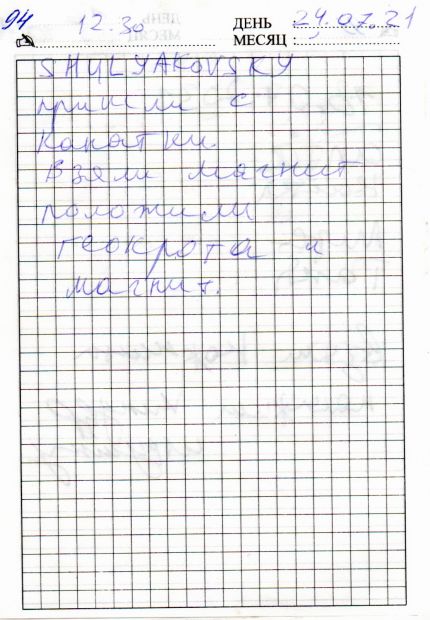 94
12.30
ДЕНЬ 24.07.21
МЕСЯЦ:
SHULYAKOVSKY
пришли с
канатки.
Взяли магнит
положили
геокрота и
магнит.